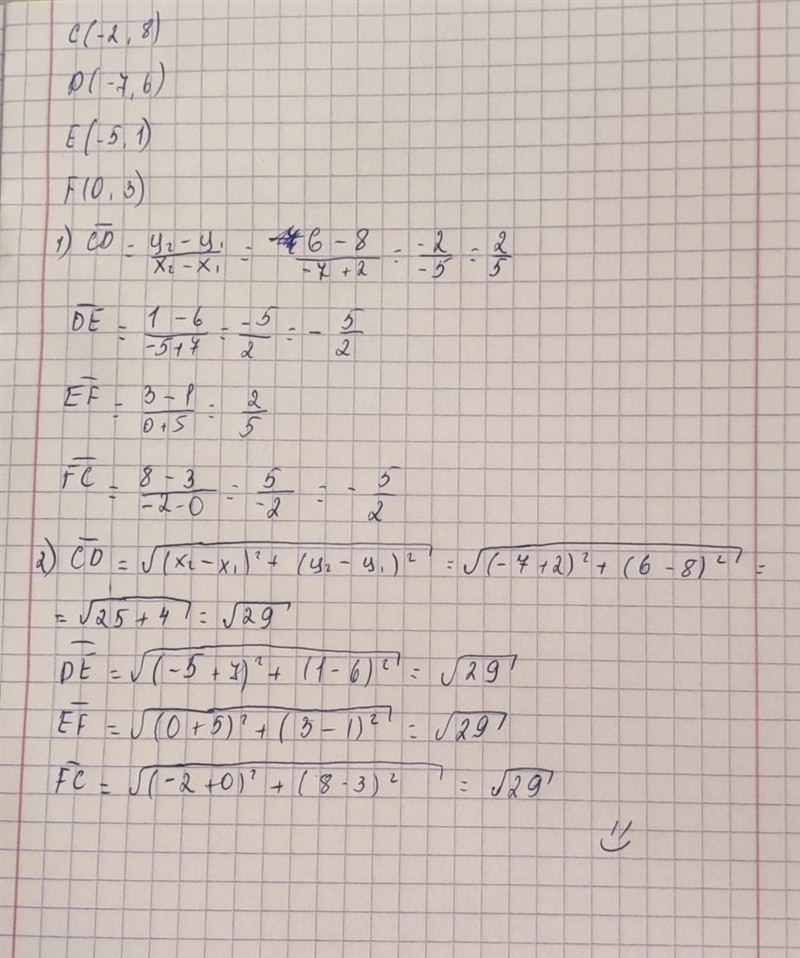 C(-2, 8)
D(-7, 6)
E(-5, 1)
F(0, 3)
1) C̅D̅ = y₂ - y₁ / x₂ - x₁ = 6 - 8 / -7 + 2 = -2 / -5 = 2 / 5
D̅E̅ = 1 - 6 / -5 + 7 = -5 / 2 = - 5 / 2
E̅F̅ = 3 - 1 / 0 + 5 = 2 / 5
F̅C̅ = 8 - 3 / -2 - 0 = 5 / -2 = - 5 / 2
2) C̅D̅ = √(x₂ - x₁)² + (y₂ - y₁)² = √(-7 + 2)² + (6 - 8)² =
= √25 + 4 = √29
D̅E̅ = √(-5 + 7)² + (1 - 6)² = √29
E̅F̅ = √(0 + 5)² + (3 - 1)² = √29
F̅C̅ = √(-2 + 0)² + (8 - 3)² = √29